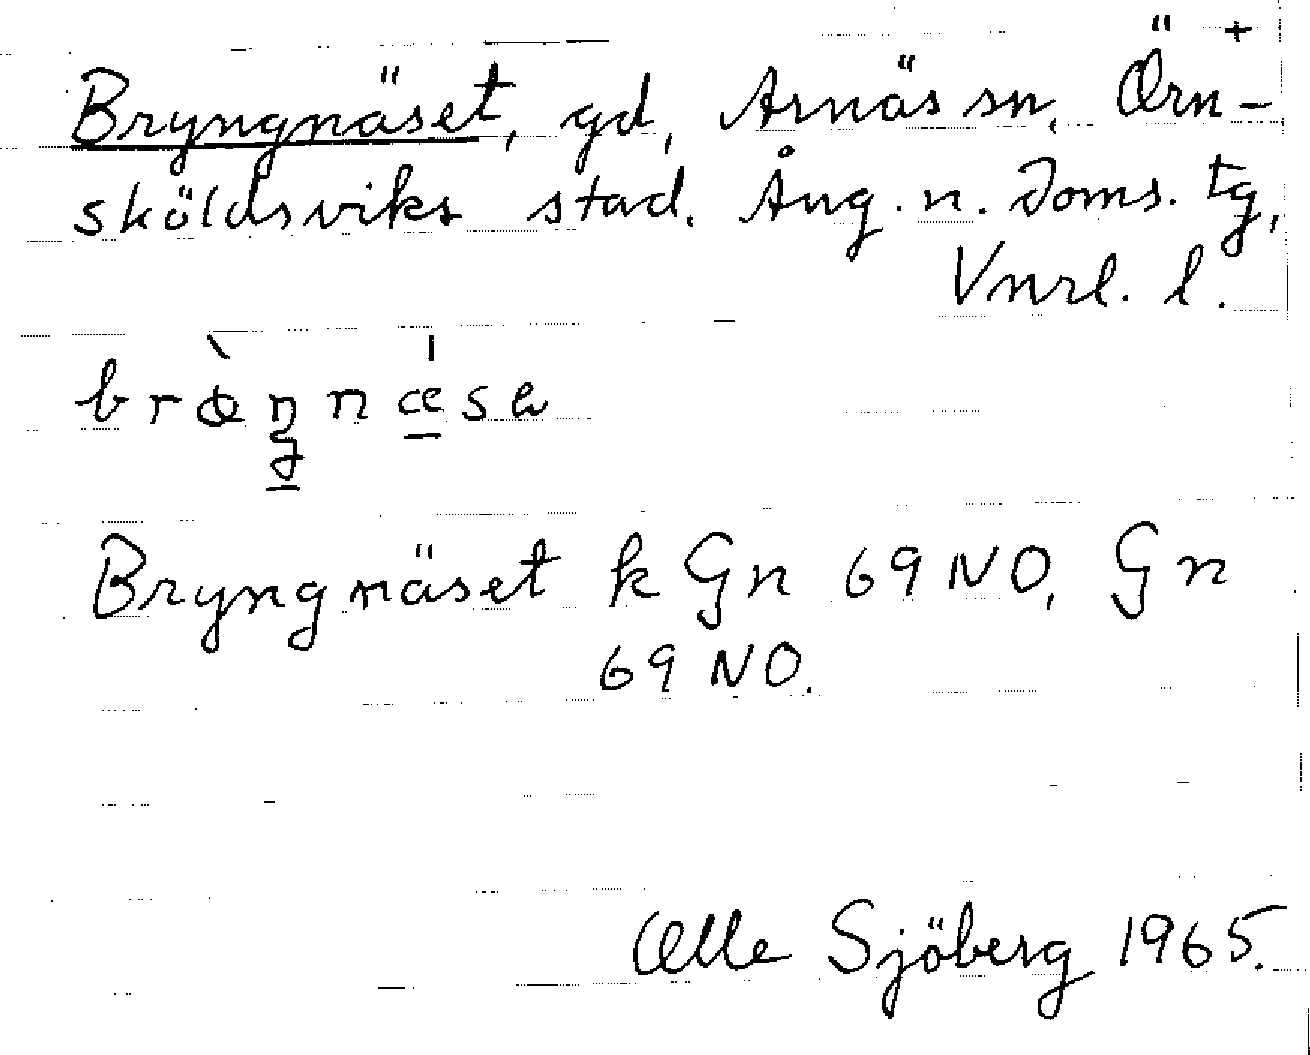 Bryngnäset, gd, Arnäs sn, Örn-
sköldsviks stad. Ång. n. Doms. tg,
Vnrl. l.
Bryngnäset k Gn 69 NO, Gn
69 NO.
Olle Sjöberg 1965.